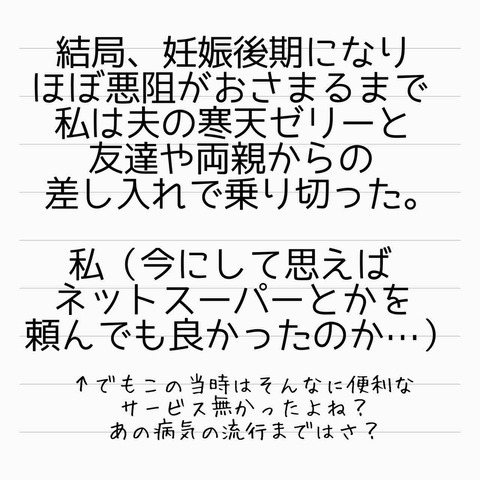 結局、妊娠後期になり
ほぼ悪阻がおさまるまで
私は夫の寒天ゼリーと
友達や両親からの
差し入れで乗り切った。
私（今にして思えば
ネットスーパーとかを
頼んでも良かったのか…）
↑でもこの当時はそんなに便利な
サービス無かったよね？
あの病気の流行まではさ？